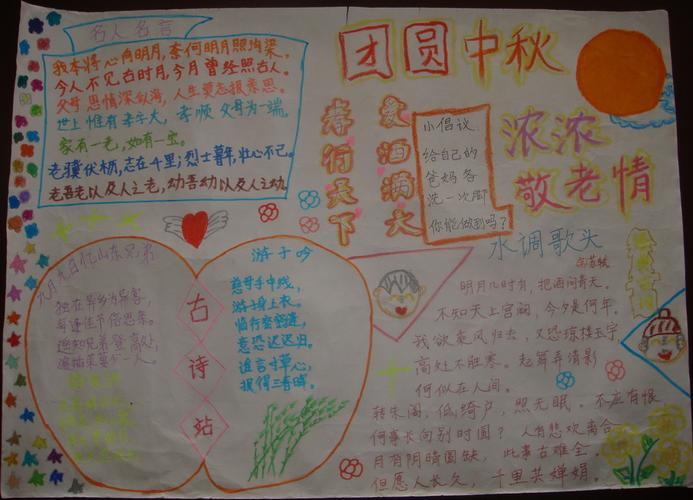 名人名言
我本将心向明月，奈何明月照沟渠。
今人不见古时月，今月曾经照古人。
父母恩情深似海，人生莫忘报养恩。
世上惟有孝字大，孝顺父母为一端。
家有一老，如有一宝。
老骥伏枥，志在千里；烈士暮年，壮心不已。
老吾老以及人之老，幼吾幼以及人之幼。
团圆中秋
孝行天下
爱洒满大
小倡议
给自己的
爸妈各
洗一次脚
你能做到吗？
浓浓
敬老情
九月九日忆山东兄弟
独在异乡为异客，
每逢佳节倍思亲。
遥知兄弟登高处，
遍插茱萸少一人。
古诗站
游子吟
慈母手中线，
游子身上衣。
临行密密缝，
意恐迟迟归。
谁言寸草心，
报得三春晖。
水调歌头
苏轼
明月几时有，把酒问青天。
不知天上宫阙，今夕是何年。
我欲乘风归去，又恐琼楼玉宇，
高处不胜寒。起舞弄清影
何似在人间。
转朱阁，低绮户，照无眠。不应有恨
何事长向别时圆？人有悲欢离合
月有阴晴圆缺，此事古难全。
但愿人长久，千里共婵娟。